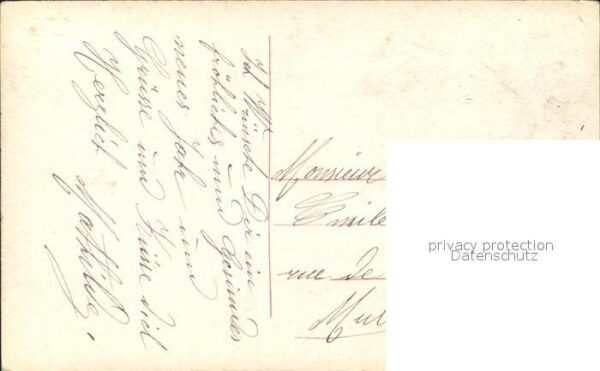 Ich Wünsche Dir ein
fröhliches und Gesundes
neues Jahr und
Grüsse und Küsse dich
Herzlich Mathilde.
Monsieur
Emile
rue de
Mul
privacy protection
Datenschutz